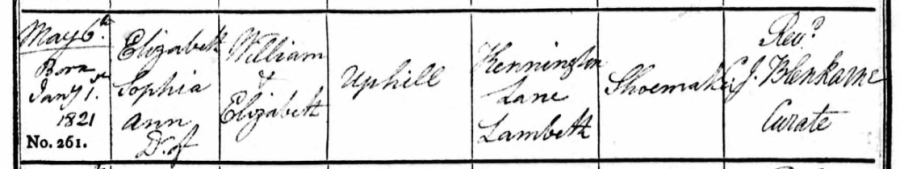 May 6th
Born
Jany 1st
1821
No. 261.
Elizabeth
Sophia
Ann
Dr. of
William
&
Elizabeth
Uphill
Kennington
Lane
Lambeth
Shoemaker
Revd
J. Blenkarne
Curate